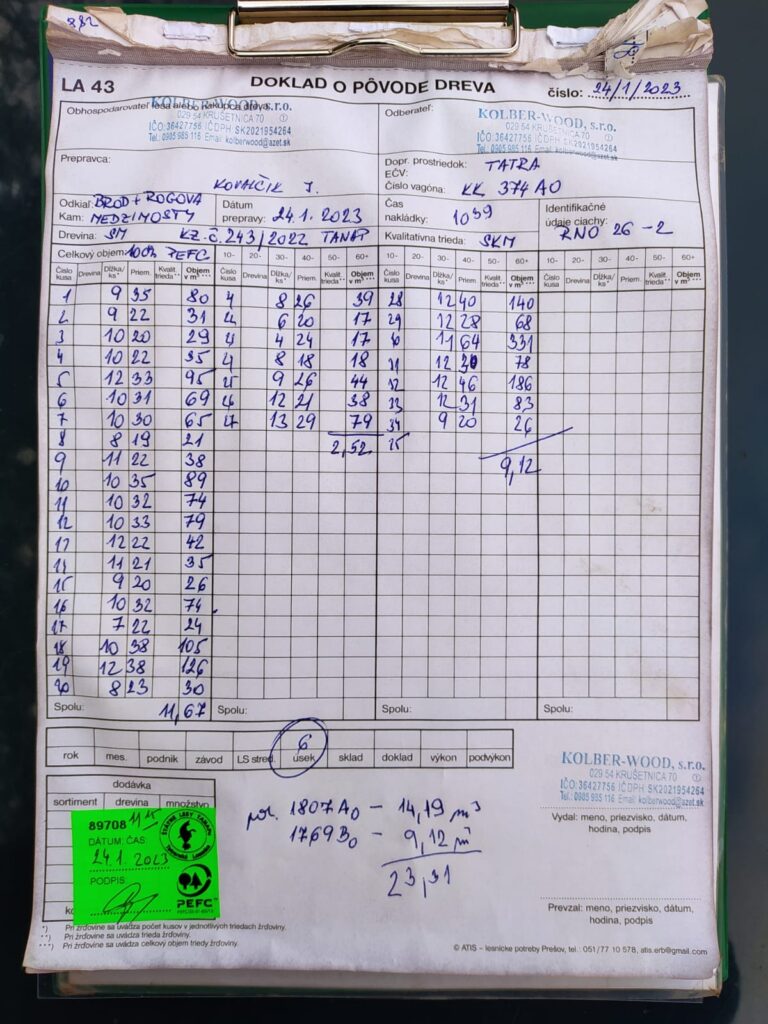 882
LA 43 DOKLAD O PÔVODE DREVA číslo: 24/1/2023
Obhospodarovateľ lesa alebo nákupca dreva:
KOLBER-WOOD, s.r.o.
029 54 KRUŠETNICA 70 ①
IČO:36427756 IČ DPH SK2021954264
Tel.: 0905 985 116 Email: kolberwood@azet.sk
Odberateľ:
KOLBER-WOOD, s.r.o.
029 54 KRUŠETNICA 70 ①
IČO:36427756 IČ DPH SK2021954264
Tel.: 0905 985 116 Email: kolberwood@azet.sk
Prepravca:
KOVALČIK J.
Dopr. prostriedok: TATRA
EČV:
Číslo vagóna: KK 374 AO
Odkiaľ: BROD + ROGOVA
Kam: MEDZIMOSTY
Dátum
prepravy: 24.1. 2023
Čas
nakládky: 10 39
Identifikačné
údaje ciachy: RNO 26 - 2
Drevina: SM KZ.Č. 243/2022 TANAP Kvalitatívna trieda: SKM
Celkový objem: 100% PEFC 10- 20- 30- 40- 50- 60+ 10- 20- 30- 40- 50- 60+ 10- 20- 30- 40- 50- 60+
Číslo kusa Drevina Dĺžka/ks* Priem. Kvalit. trieda** Objem v m³ *** Číslo kusa Drevina Dĺžka/ks* Priem. Kvalit. trieda** Objem v m³ *** Číslo kusa Drevina Dĺžka/ks* Priem. Kvalit. trieda** Objem v m³ *** Číslo kusa Drevina Dĺžka/ks* Priem. Kvalit. trieda** Objem v m³ ***
1 9 35 80 8 26 39 28 12 40 140
2 9 22 31 6 20 17 29 12 28 68
3 10 20 29 4 24 17 11 64 331
4 10 22 35 8 18 18 12 30 78
5 12 33 95 9 26 44 12 46 186
6 10 31 69 12 21 38 12 31 83
7 10 30 65 13 29 79 34 9 20 26
8 8 19 21 2,52
9 11 22 38 9,12
10 10 35 89
11 10 32 74
12 10 33 79
12 22 42
11 21 35
15 9 20 26
16 10 32 74
17 7 22 24
18 10 38 105
19 12 38 126
20 8 23 30
Spolu: 11,67 Spolu: Spolu: Spolu:
6
rok mes. podnik závod LS stred. úsek sklad doklad výkon podvýkon
dodávka
sortiment drevina množstvo
89708 11 15
DÁTUM, ČAS:
24.1. 2023
PODPIS:
ŠTÁTNE LESY TANAPu
Tatranská Lomnica
PEFC
1807 A0 - 14,19 m³
1769 B0 - 9,12 m³
23,31
KOLBER-WOOD, s.r.o.
029 54 KRUŠETNICA 70 ①
IČO:36427756 IČ DPH SK2021954264
Tel.: 0905 985 116 Email: kolberwood@azet.sk
Vydal: meno, priezvisko, dátum,
hodina, podpis
Prevzal: meno, priezvisko, dátum,
hodina, podpis
*) Pri žrďovine sa uvádza počet kusov v jednotlivých triedach žrďoviny.
**) Pri žrďovine sa uvádza trieda žrďoviny.
***) Pri žrďovine sa uvádza celkový objem triedy žrďoviny.
© ATIS – lesnícke potreby Prešov, tel.: 051/77 10 578, atis.erb@gmail.com